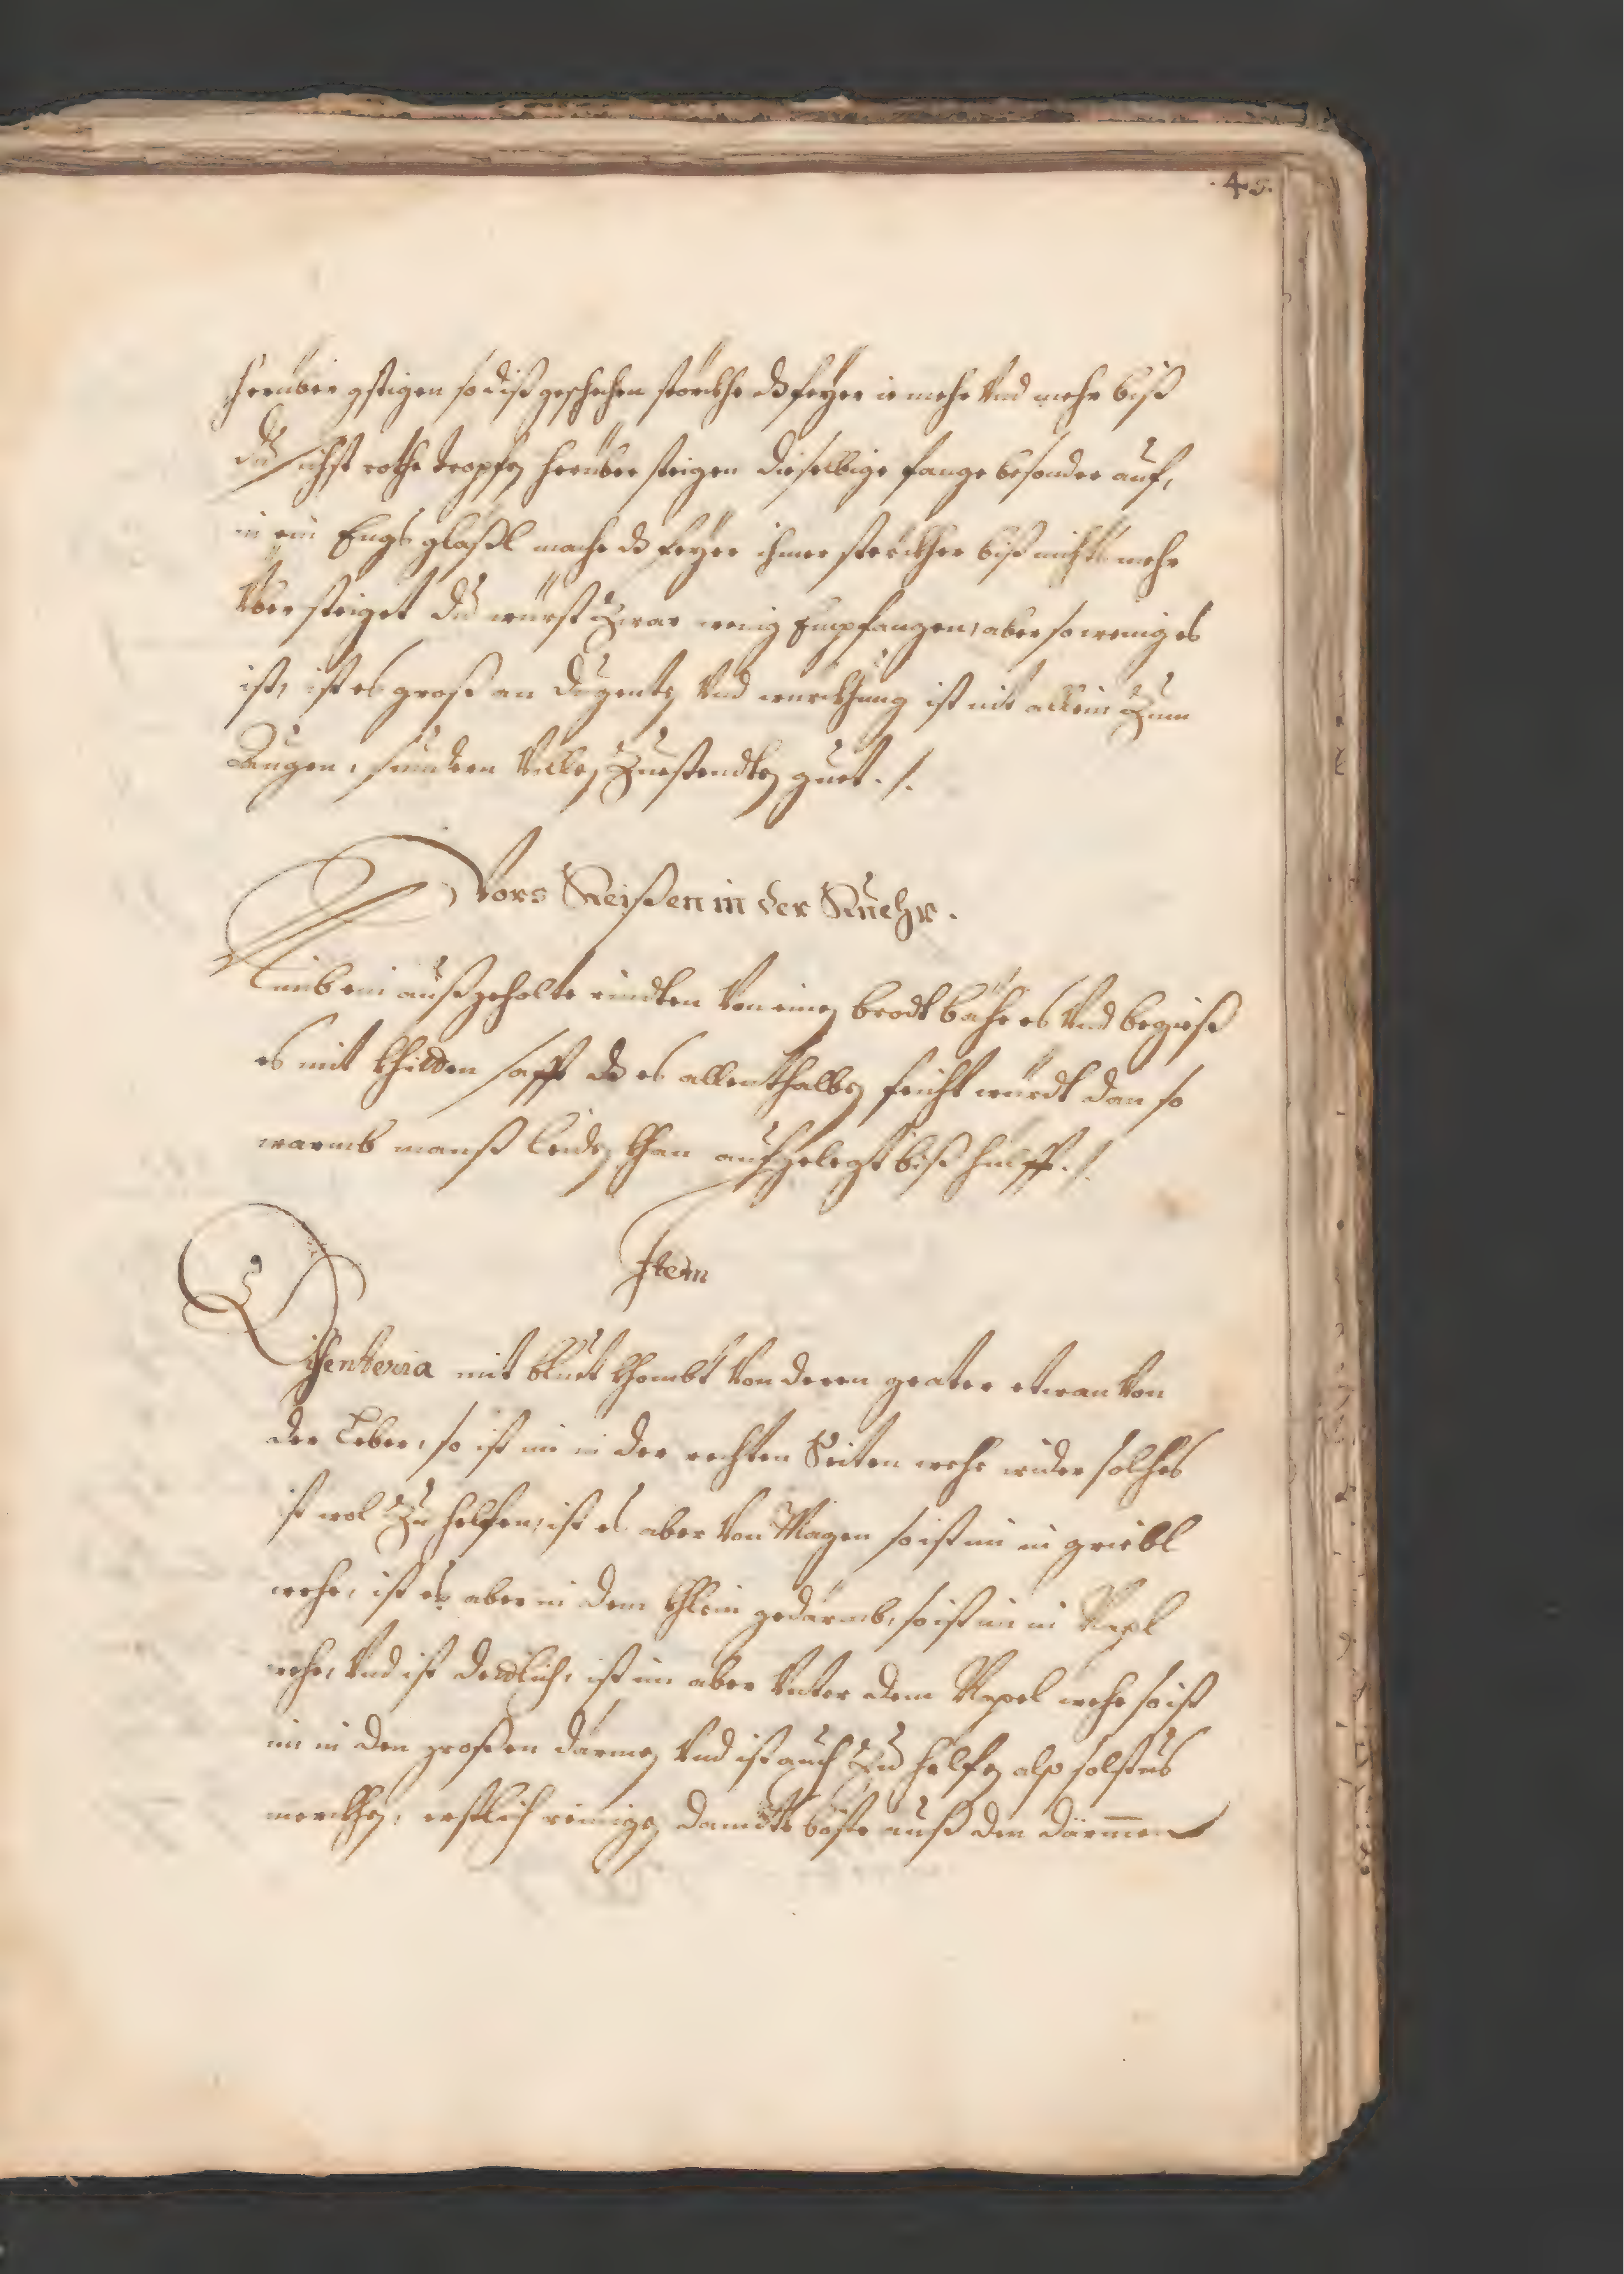 .45.
herüber gstigen so diß geschehen störckhe dz feyer ie mehr vnd mehr biß
du sichst rothe tropfen herüber steigen dieselbige fange besonder auf,
in ein Engs glaßl mache dz feyer ihmer sterckher biß nichts mehr
über steiget du würst zwar wenig Empfangen, aber so wenig es
ist, ist es groß an dugenten vnd würckhung ist nit allein zum
Augen, sundern villen Zuestendten guet ./.
Vors Reißen in der Ruehr.
Nimb ein außgeholte rindten von einen brodt bähe es vnd begieß
es mit khitten safft dz es allenthalben feicht würdt dan so
warmb manß leiden khan aufgelegt biß hülfft ./.
Item
Disenteria mit bluet khombt von deren geater etwan von
der Leber, so ist im in der rechten Seiten wehe wider solches
ist wol zu helfen, ist es aber von Magen so ist im in griebl
wehe, ist es aber in dem khlein gedärmb, so ist im in Napl
wehe, vnd ist dedlich, ist im aber vnter dem Napel wehe so ist
im in den großen därmen vnd ist auch zu helfen also solstus
merckhen, erstlich reinigen damits böste auß den därmen